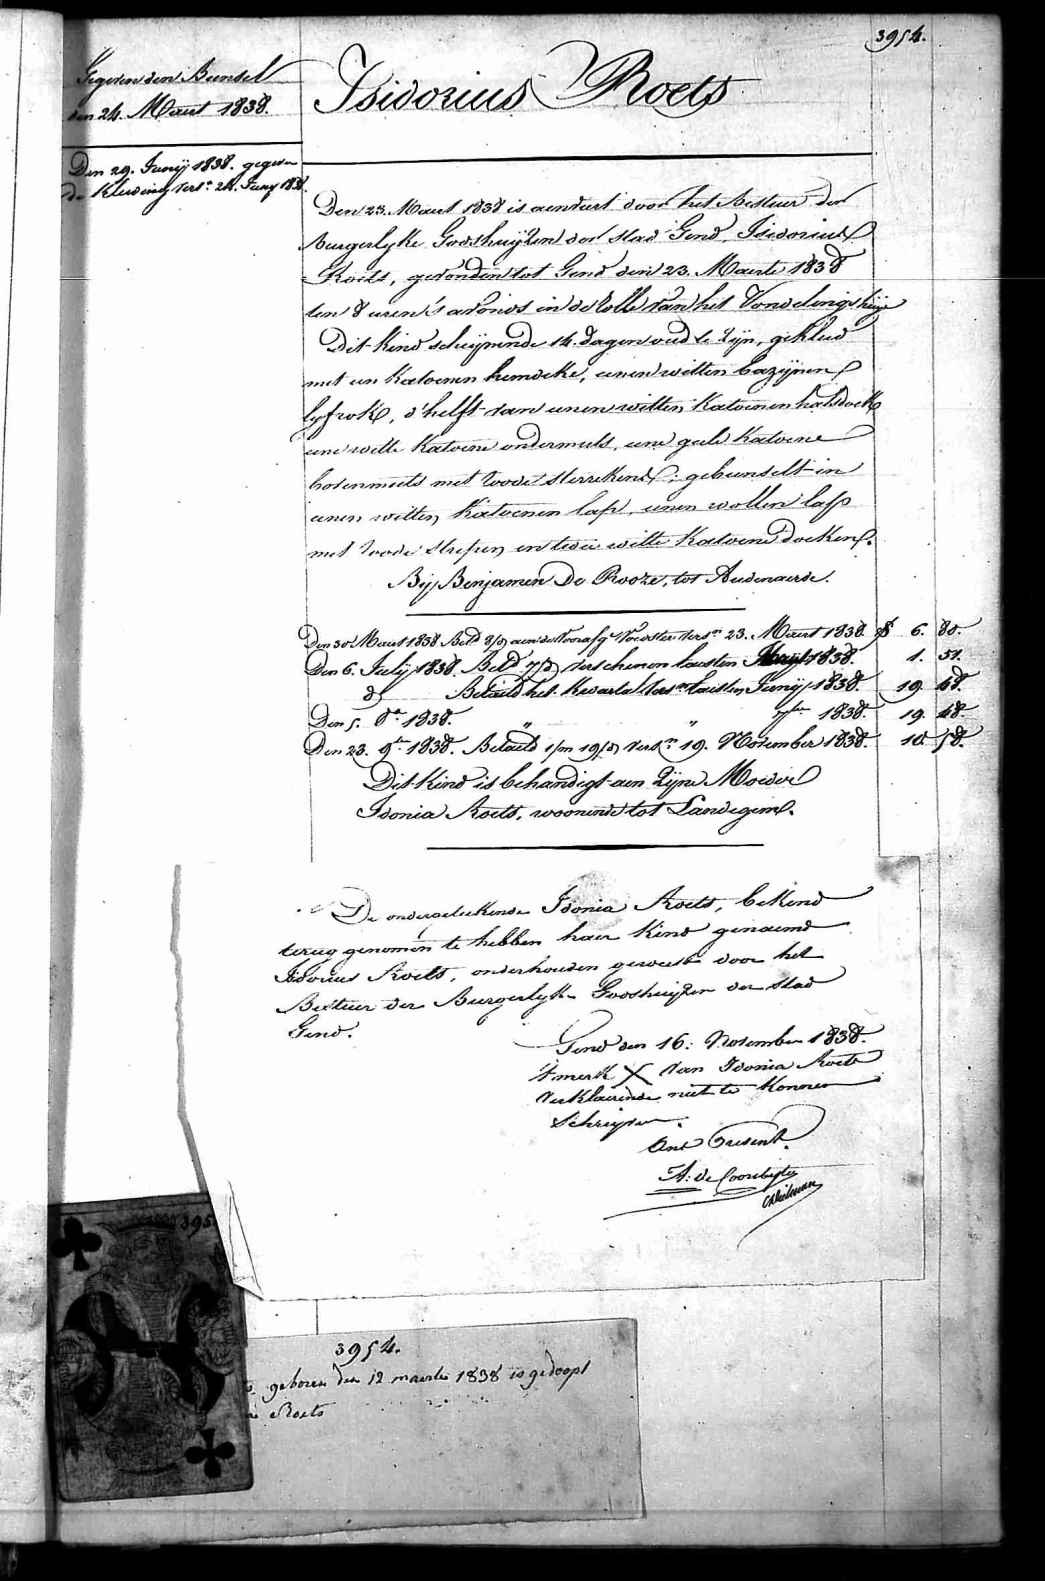 3954.
Gegeven den Bunsel
den 24. Maert 1838.
Isidorius Roets
Den 29. Junij 1838. gegeven
de Kleeding vers.n 24. Junij 1838.
Den 23. Maert 1838 is aenveirt door het Bestuer der
Burgerlyke Godshuijzen der stad Gend, Isidorius
Roets, gevonden tot Gend den 23. Maerte 1838
ten 8 uren 's avonds in de Rolle van het Vondelingshuijs
Dit kind schijnende 14. dagen oud te zijn, gekleed
met een Katoenen hemdeke, eenen witten bazijnen
lyfrok, d'helft van eenen witten Katoenen halsdoek
eene witte Katoene ondermuts, eene geele Katoene
bovenmuts met roode sterrekens; gebunselt in
eenen witten Katoenen lap, eenen wollen lap
met roode strepen en twee witte Katoene doeken.
Bij Benjamen De Rooze, tot Audenaerde.
Den 30 Maert 1838 Bet.d 8/d aen de Voorafg. Voedster vers.n 23. Maert 1838. 6. 80.
Den 6. Julij 1838. Bet.d 7/d verschenen lausten 1838. 1. 51.
d.o Betaeld het Kwartael vers.n lausten Junij 1838. 19. 48.
Den 5. 8.er 1838. " " 7.ber 1838. 19. 48.
Den 23. 9.er 1838. Betaeld 1/m 19/d vers.n 19. November 1838. 10. 58.
Dit Kind is behandigt aen Zijne Moeder
Idonia Roets, woonende tot Landegem.
De ondergeteekende Idonia Roets, bekend
terug genomen te hebben haer Kind genaemd
Isidorius Roets, onderhouden geweest door het
Bestuer der Burgerlyke Godshuijzen der Stad
Gend.
Gend den 16: November 1838.
't merk X van Idonia Roets
verklaerende niet te Konnen
Schrijven.
Ons Present.
A: de Coorebyter
395
3954.
geboren den 12 maerte 1838 is gedoopt
Roets